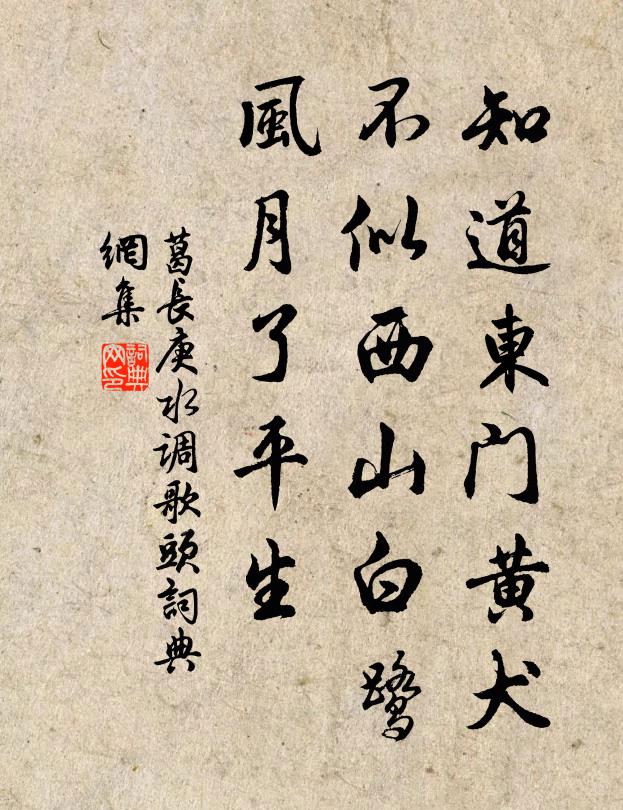 知道東門黃犬
不似西山白鷺
風月了平生
葛長庚水调歌頭詞典
網集
詞典
网印